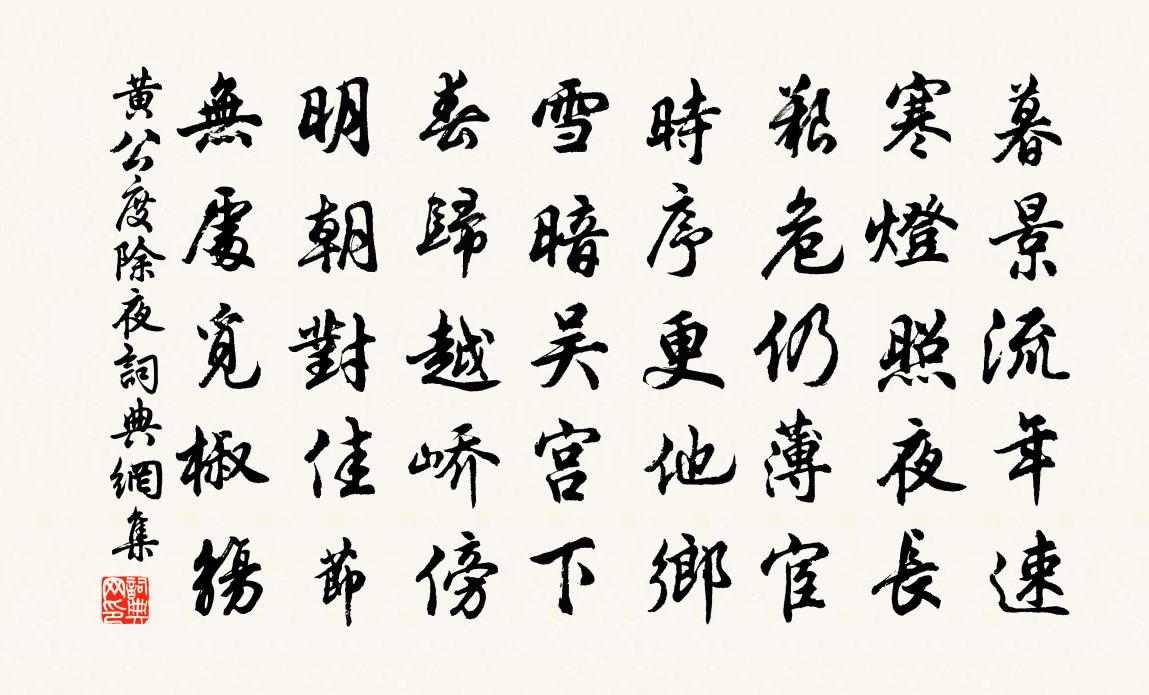 暮景流年速
寒燈照夜長
艱危仍薄宦
時序更他鄉
雪暗吴宫下
春歸越嶠傍
明朝對佳節
無處覓椒觴
黄公度除夜詞典網集
詞典網印